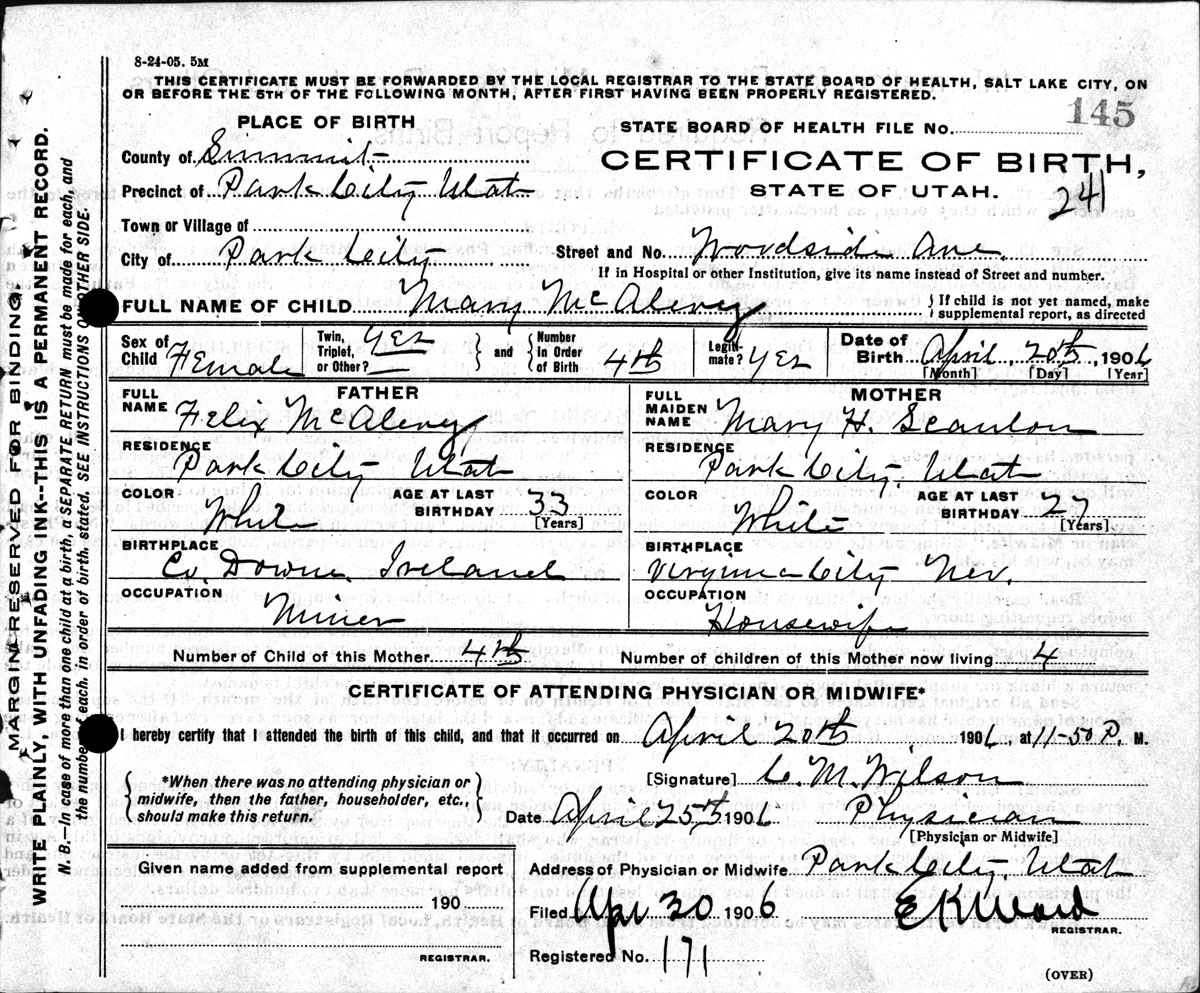 8-24-05. 5M
THIS CERTIFICATE MUST BE FORWARDED BY THE LOCAL REGISTRAR TO THE STATE BOARD OF HEALTH, SALT LAKE CITY, ON
OR BEFORE THE 5TH OF THE FOLLOWING MONTH, AFTER FIRST HAVING BEEN PROPERLY REGISTERED.
PLACE OF BIRTH
STATE BOARD OF HEALTH FILE No. 145
County of Summit
CERTIFICATE OF BIRTH,
Precinct of Park City Utah
STATE OF UTAH.
241
Town or Village of
City of Park City
Street and No. Woodside Ave.
If in Hospital or other Institution, give its name instead of Street and number.
FULL NAME OF CHILD Mary McAlevey
If child is not yet named, make supplemental report, as directed
Sex of Child Female
Twin, Triplet, or Other? Yes
and
Number in Order of Birth 4th
Legitimate? Yes
Date of Birth April 20th, 1906
[Month] [Day] [Year]
FATHER
FULL NAME Felix McAlevey
MOTHER
FULL MAIDEN NAME Mary H. Scanlon
RESIDENCE Park City Utah
RESIDENCE Park City, Utah
COLOR White
AGE AT LAST BIRTHDAY 33
[Years]
COLOR White
AGE AT LAST BIRTHDAY 27
[Years]
BIRTHPLACE Co. Downe. Ireland
BIRTHPLACE Virginia City Nev.
OCCUPATION Miner
OCCUPATION Housewife
Number of Child of this Mother 4th
Number of children of this Mother now living 4
CERTIFICATE OF ATTENDING PHYSICIAN OR MIDWIFE*
I hereby certify that I attended the birth of this child, and that it occurred on April 20th 1906, at 11-50 P. M.
*When there was no attending physician or
midwife, then the father, householder, etc.,
should make this return.
[Signature] C. M. Wilson
Date April 25th 1906 Physician
[Physician or Midwife]
Given name added from supplemental report
190
REGISTRAR.
Address of Physician or Midwife Park City, Utah
Filed Apr 30 1906 E K Ward
REGISTRAR.
Registered No. 171
(OVER)
MARGIN RESERVED FOR BINDING
WRITE PLAINLY WITH UNFADING INK--THIS IS A PERMANENT RECORD.
N. B.--In case of more than one child at a birth, a SEPARATE RETURN must be made for each, and
the number of each, in order of birth, stated. SEE INSTRUCTIONS ON OTHER SIDE.